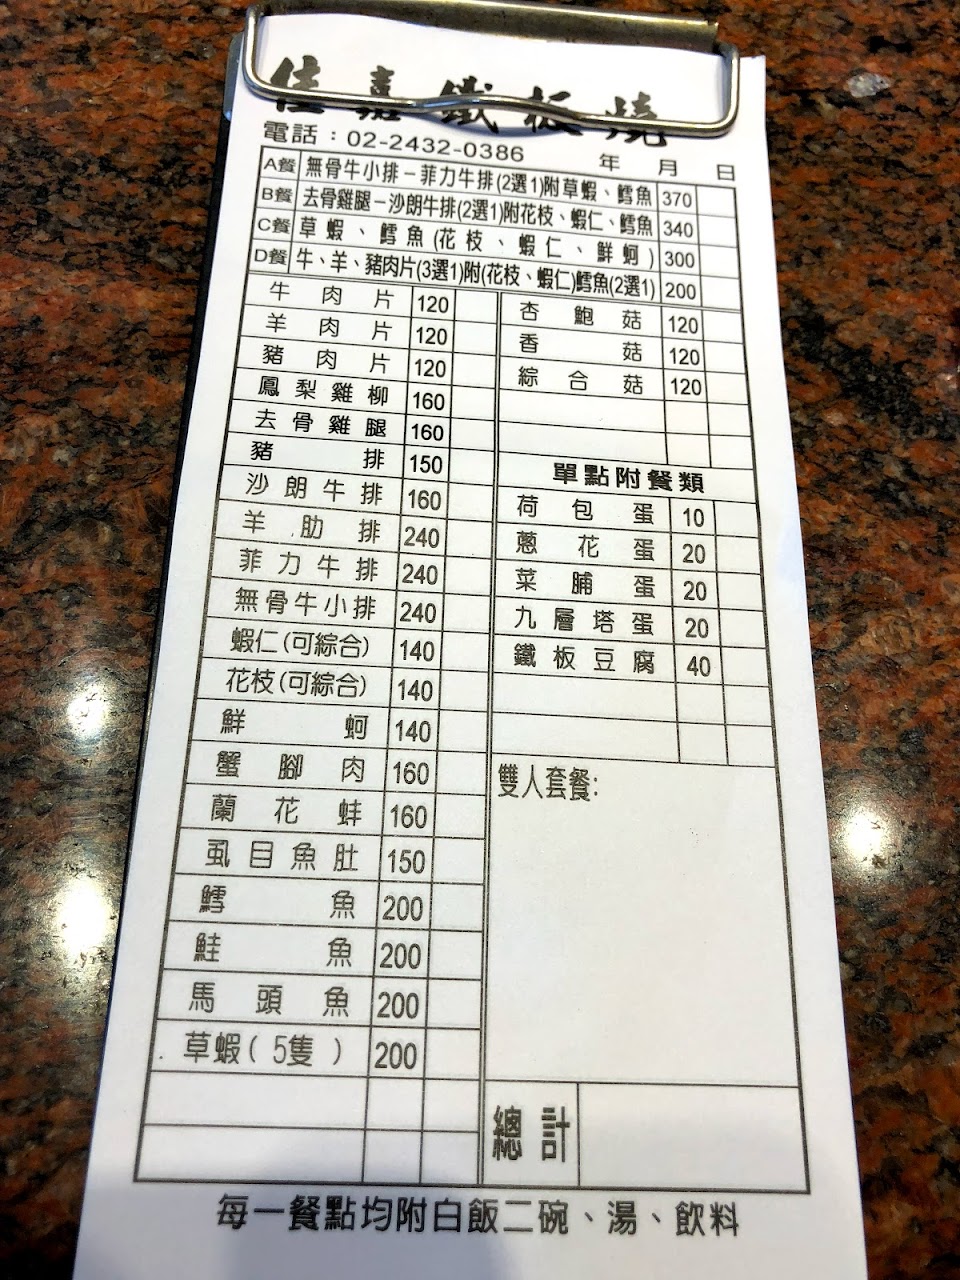 佳嘉鐵板燒
電話：02-2432-0386 年 月 日
A餐 無骨牛小排－菲力牛排(2選1)附草蝦、鱈魚 370
B餐 去骨雞腿－沙朗牛排(2選1)附花枝、蝦仁、鱈魚 340
C餐 草蝦、鱈魚(花枝、蝦仁、鮮蚵) 300
D餐 牛、羊、豬肉片(3選1)附(花枝、蝦仁)鱈魚(2選1) 200
牛肉片 120
羊肉片 120
豬肉片 120
鳳梨雞柳 160
去骨雞腿 160
豬排 150
沙朗牛排 160
羊肋排 240
菲力牛排 240
無骨牛小排 240
蝦仁(可綜合) 140
花枝(可綜合) 140
鮮蚵 140
蟹腳肉 160
蘭花蚌 160
虱目魚肚 150
鱈魚 200
鮭魚 200
馬頭魚 200
草蝦(5隻) 200
杏鮑菇 120
香菇 120
綜合菇 120
單點附餐類
荷包蛋 10
蔥花蛋 20
菜脯蛋 20
九層塔蛋 20
鐵板豆腐 40
雙人套餐:
總計
每一餐點均附白飯二碗、湯、飲料